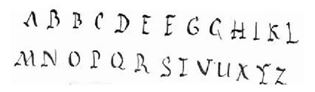 A B B C D E E G G H I K L
M N O P Q R S T V U X Y Z